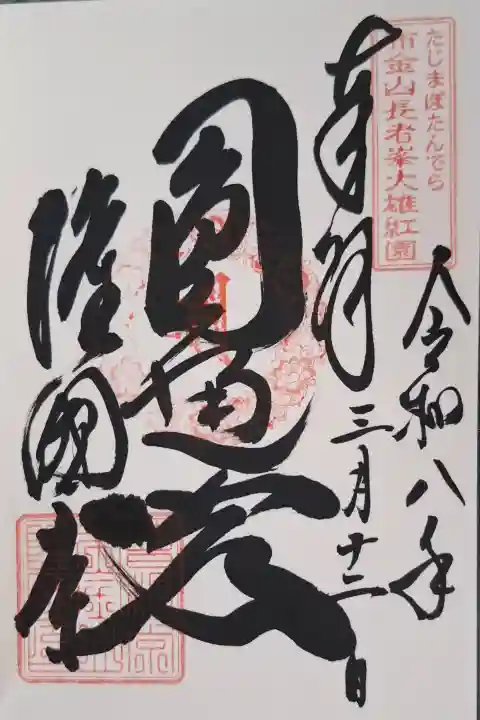 たじまぼたんでら
布金山長者峯大雄紅園
令和八年
三月十二日
奉拝
圓通殿
隆國寺